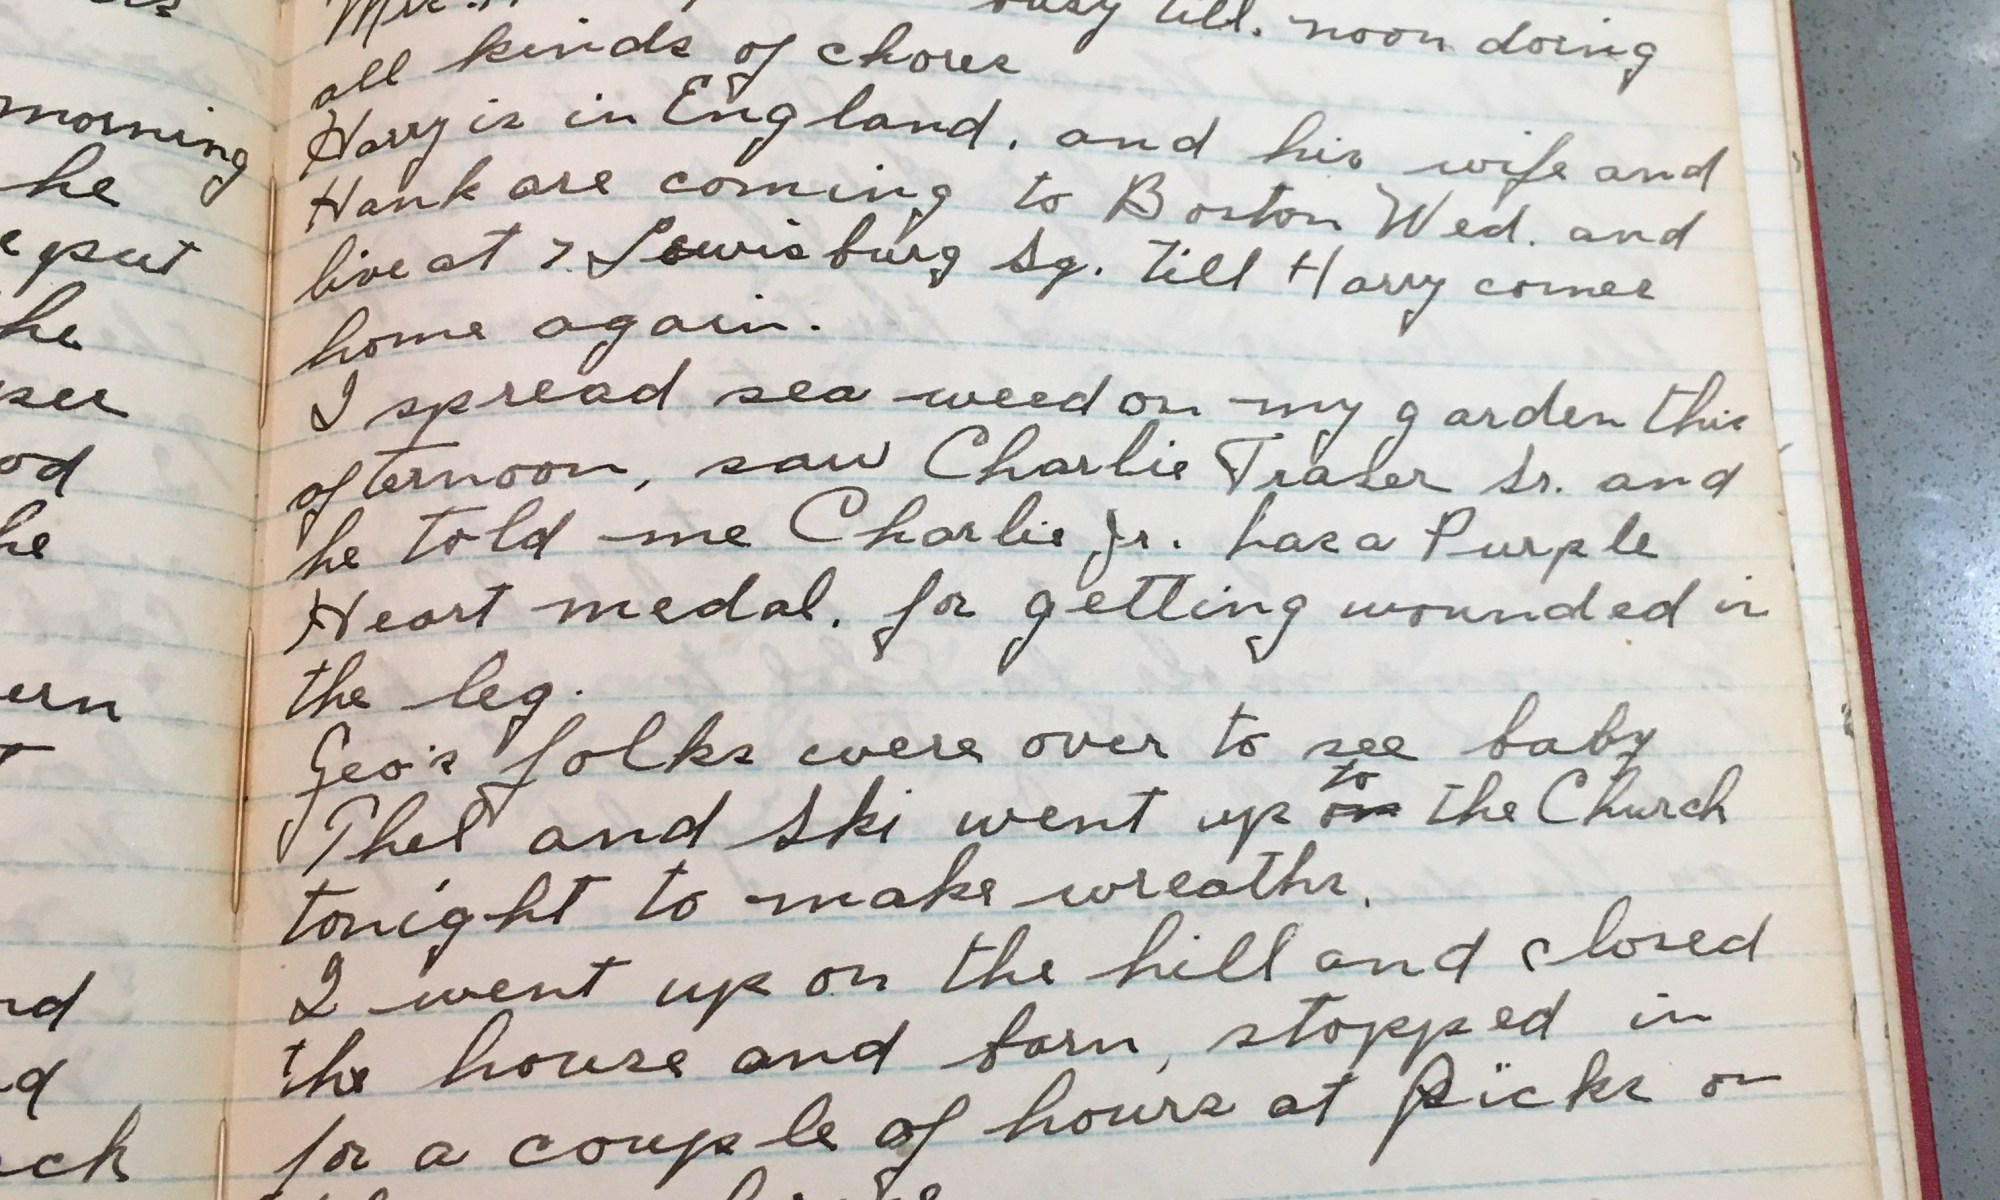 morning
he
put
he
ern
ck
busy till. noon doing
all kinds of chores
Harry is in England. and his wife and
Hank are coming to Boston Wed. and
live at 7. Lewisburg Sq. till Harry comes
home again.
I spread sea weed on my garden this
afternoon, saw Charlie Fraser Sr. and
he told me Charlie Jr. has a Purple
Heart medal. for getting wounded in
the leg.
Geo's folks were over to see baby
Thel and Ski went up to the Church
tonight to make wreaths.
I went up on the hill and closed
the house and barn, stopped in
for a couple of hours at Ricks on